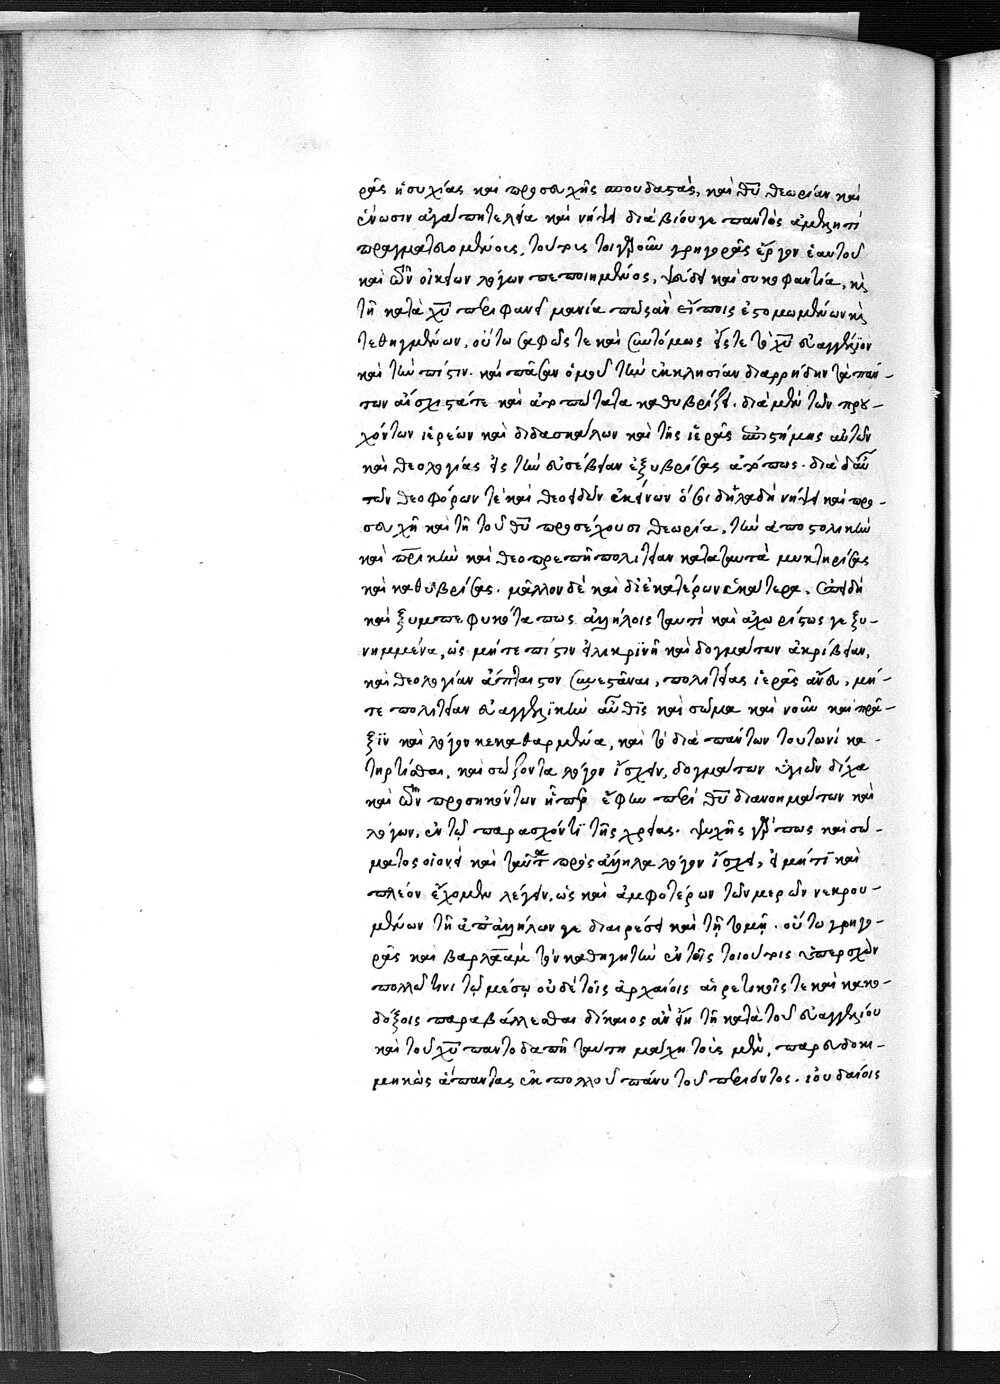 ρᾶς ἡσυχίας καὶ προσευχῆς σπουδαστὰς, καὶ θυ θεωρίαν καὶ
ἕνωσιν ἀγαπητελεία καὶ νήψει διὰ βίου γε παντὸς ἀμελητὶ
πραγματευομένοις, τούτοις τοιγαροῦν γρηγορᾶς ἔργον ἑαυτοῦ
καὶ τῶν οἰκείων λόγων πεποιημένος, ψεύδει καὶ συκοφαντία, κὶ
τῇ κατὰ χυ περιφανεῖ μανία πῶς ἂν εἴποις ἐστομωμένων κὶ
τεθηγμένων, οὕτω σαφῶς τε καὶ συντόμως εἴς τε τὸ χυ εὐαγγέλιον
καὶ τὴν πίστιν. καὶ πᾶσαν ὁμοῦ τὴν ἐκκλησίαν διαρρήδην τὰ πάν-
των αἴσχιστά τε καὶ ἀτοπώτατα καθυβρίζει. διὰ μὲν τῶν πρου-
χόντων ἱερέων καὶ διδασκάλων καὶ τῆς ἱερᾶς ἐπιστήμης αὐτῶν
καὶ θεολογίας εἰς τὴν εὐσέβειαν ἐξυβρίσας ἀτόπως. διὰ δ' αὖ
τῶν θεοφόρων τὲ καὶ θεοειδῶν ἐκείνων ὅσοι δηλαδὴ νήψει καὶ προ-
σευχῇ καὶ τῇ τοῦ θυ προσέχουσι θεωρία, τὴν ἀποστολικὴν
καὶ πρικὴν καὶ θεοπρεπῆ πολιτείαν κατὰ ταυτὰ μυκτηρίσας
καὶ καθυβρίσας. μᾶλλον δὲ καὶ δι' ἑκατέρων ἑκάτερα, ἐπειδὴ
καὶ ξυμπεφυκότα πως ἀλλήλοις ταυτὶ καὶ ἀχωρίστως γε ξυ-
νημμένα, ὡς μήτε πίστιν εἰλικρινῆ καὶ δογμάτων ἀκρίβειαν,
καὶ θεολογίαν ἄπταιστον συνεστάναι, πολιτείας ἱερᾶς ἄνευ, μή-
τε πολιτείαν εὐαγγελικὴν αὖθις καὶ σῶμα καὶ νοῦν καὶ πρᾶ-
ξιν καὶ λόγον κεκαθαρμένα, καὶ τὸ διὰ πάντων τουτωνὶ κα-
τηρτίσθαι, καὶ σώζοντα λόγον ἴσχειν, δογμάτων ὑγιῶν δίχα
καὶ τῶν προσηκόντων ᾗπερ ἔφην περὶ θυ διανοημάτων καὶ
λόγων, ἐν τῷ παρασχόντι τῆς χρείας. ψυχῆς γάρ πως καὶ σώ-
ματος οἱονεὶ καὶ ταῦτα πρὸς ἄλληλα λόγον ἴσχει, εἰ μή τι καὶ
πλέον ἔχομεν λέγειν, ὡς καὶ ἀμφοτέρων τῶν μερῶν νεκρου-
μένων τῇ ἀπ' ἀλλήλων γε διαιρέσει καὶ τῇ τομῇ. οὕτω γρηγο-
ρᾶς καὶ βαρλαὰμ τὸν καθηγητὴν ἐν τοῖς τοιούτοις ὑπερσχὼν
πολλῷ τινι τῷ μέσῳ οὐδὲ τοῖς ἀρχαίοις αἱρετικοῖς τε καὶ κακο-
δόξοις παραβάλλεσθαι δίκαιος ἂν εἴη τῇ κατὰ τοῦ εὐαγγελίου
καὶ τοῦ χυ παντοδαπῇ ταύτῃ μάχῃ τοῖς μὲν, παρευδοκι-
μηκὼς ἅπαντας ἐκ πολλοῦ πάνυ τοῦ περιόντος. ἰουδαίοις